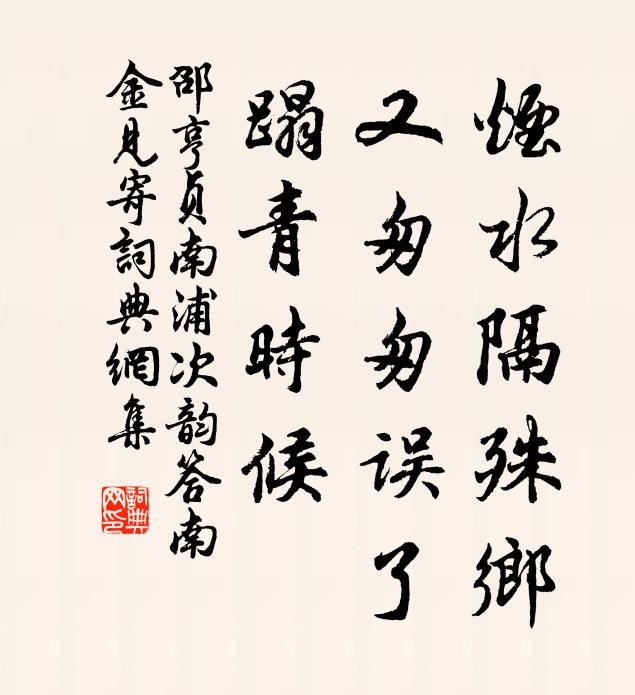 煙水隔殊鄉
又匆匆误了
蹋青時候
邵亨貞南浦次韵答南
金見寄詞典網集
詞典
网印